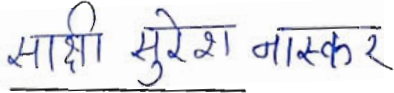 साक्षी सुरेश नास्कर